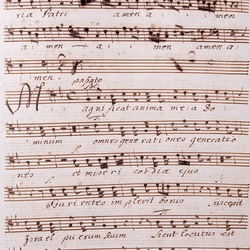 ria Patri amen a
a men a men amen a
men.
M agnificat anima mea Do
minum omnes generationes generatio
nes et misericordia ejus
Esurientes implevit bonis suscepit
Israel puerum suum Sicut locutus est